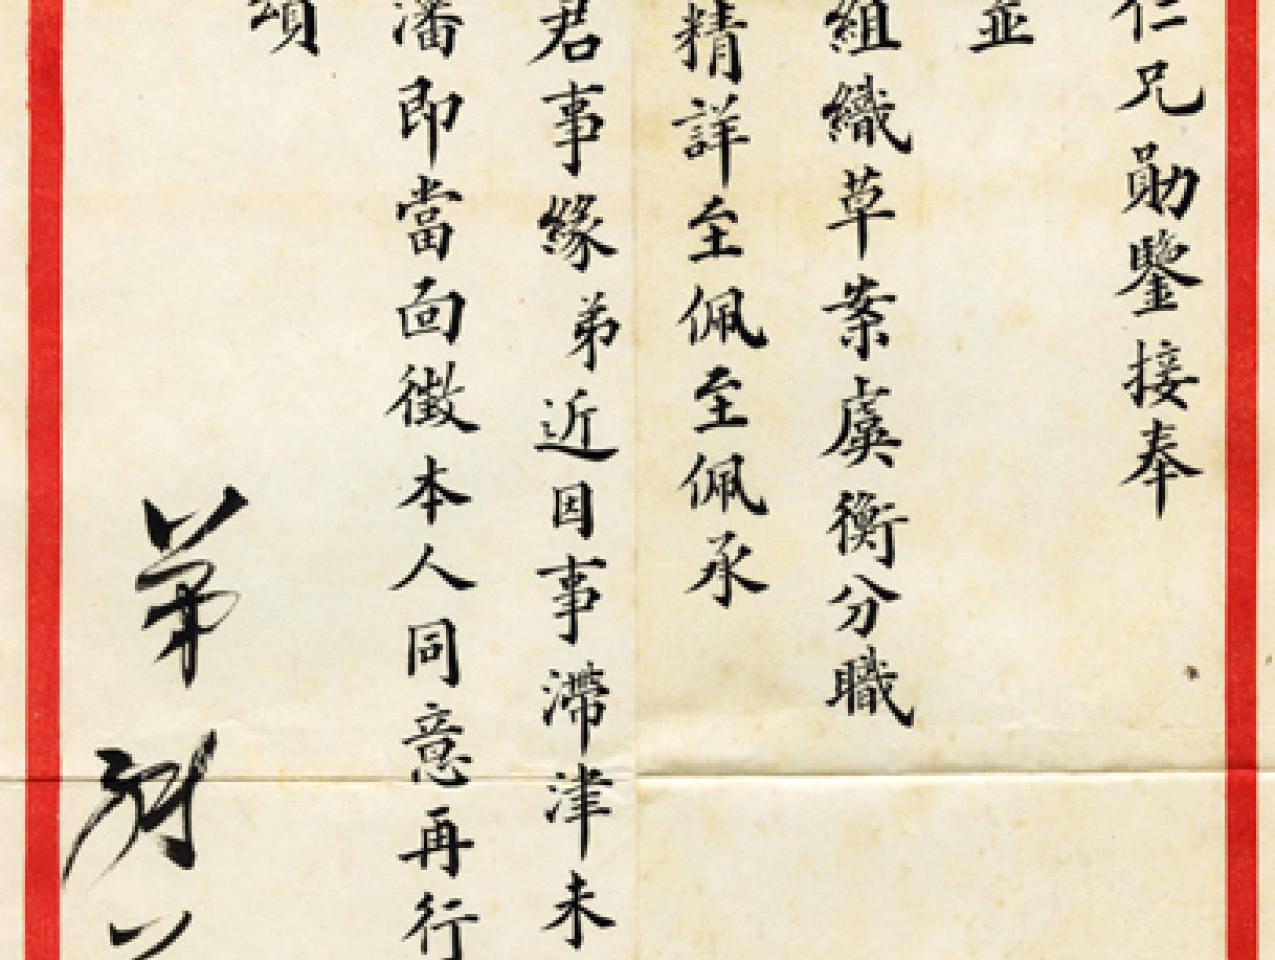 仁兄勛鑒接奉
並
組織草案虞衡分職
精詳至佩至佩承
君事緣弟近因事滯津未
潘即當面徵本人同意再行
頌
弟